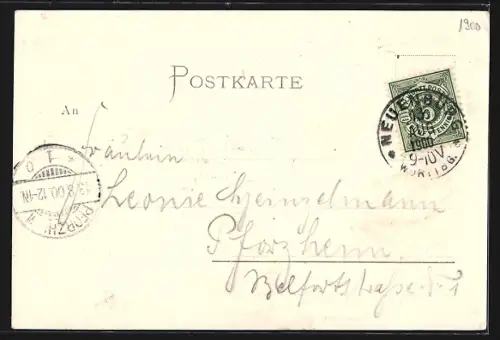 1900
POSTKARTE
An
NEUENBÜRG
1900
9-10V
WÜRTTBG.
5
Fräulein
Leonie Heinzelmann
Pforzheim.
Belfortstrasse
PFORZHEIM
13.8.00.12-1N.
1 0